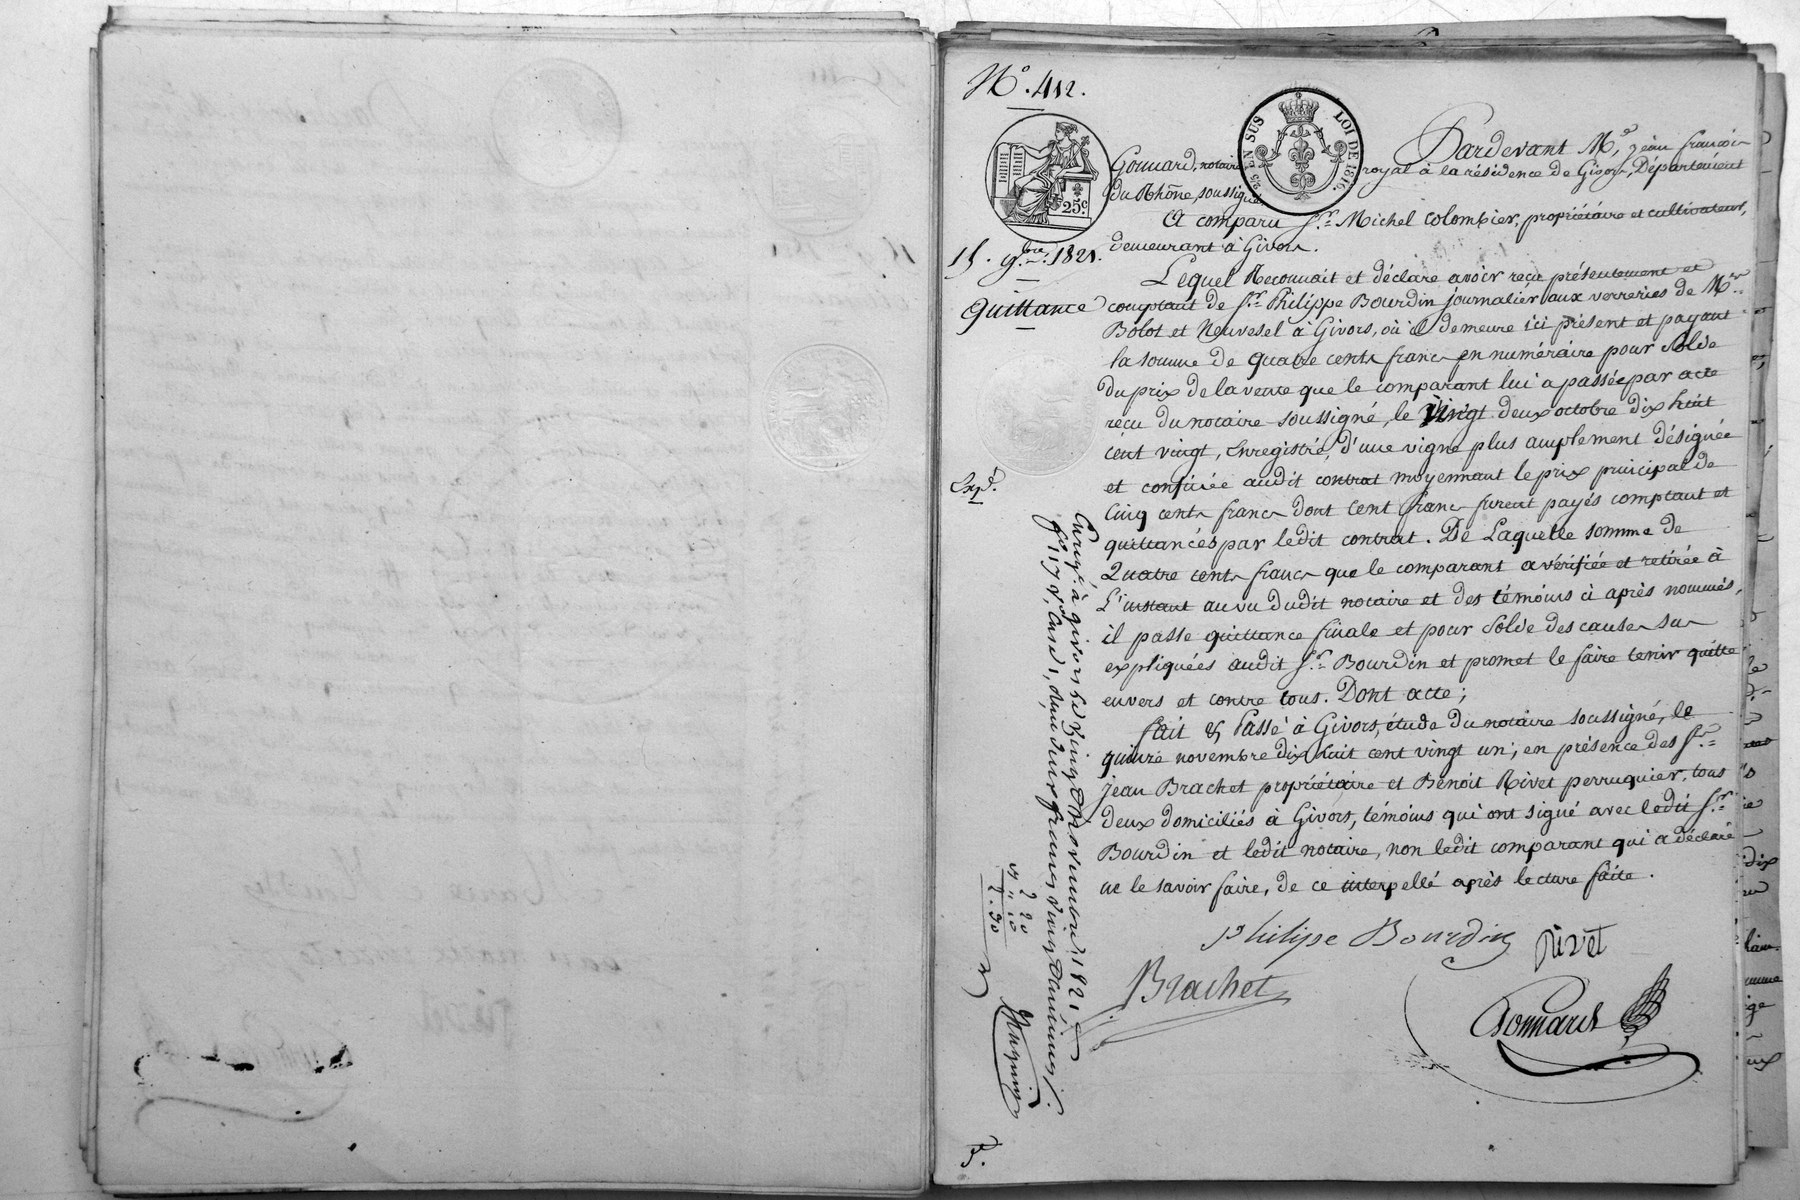 N.º 412.
25 EN SUS LOI DE 1816.
25c
Pardevant M.e jean françois
Gonnard, notaire royal à la résidence de Givors, Département
du Rhône, soussigné.
A comparu S.r Michel Colombier, propriétaire et cultivateur,
demeurant à Givors.
15. 9.bre 1821.
Quittance
Lequel Reconnait et déclare avoir reçu présentement et
comptant de S.r Philippe Bourdin journalier aux verreries de M.rs
Bolot et Neuvesel à Givors, où il demeure ici présent et payant
la somme de quatre cents francs en numéraire pour solde
du prix de la vente que le comparant lui a passée par acte
reçu du notaire soussigné, le vingt deux octobre dix huit
cent vingt, enregistré, d'une vigne plus amplement désignée
et confinée audit contrat moyennant le prix principal de
Cinq cents francs dont cent francs furent payés comptant et
quittancés par ledit contrat. De Laquelle somme de
Quatre cents francs que le comparant a vérifiée et retirée à
L'instant au vu dudit notaire et des témoins ci après nommés,
il passe quittance finale et pour solde des causes sus
expliquées audit S.r Bourdin et promet le faire tenir quitte
envers et contre tous. Dont acte;
fait & Passé à Givors, étude du notaire soussigné, le
quinze novembre dix huit cent vingt un; en présence des S.rs
jean Brachet propriétaire et Benoit Rivet perruquier, tous
deux domiciliés à Givors, témoins qui ont signé avec ledit S.r
Bourdin et ledit notaire, non ledit comparant qui a déclaré
ne le savoir faire, de ce interpellé après lecture faite.
Exp.é
Philipe Bourdin
Rivet
Brachet
Gonnard
Enreg.é à givors le vingt Novembre 1821
f.o 17 v.o Case 1, deux francs vingt centimes
2 20
2.20